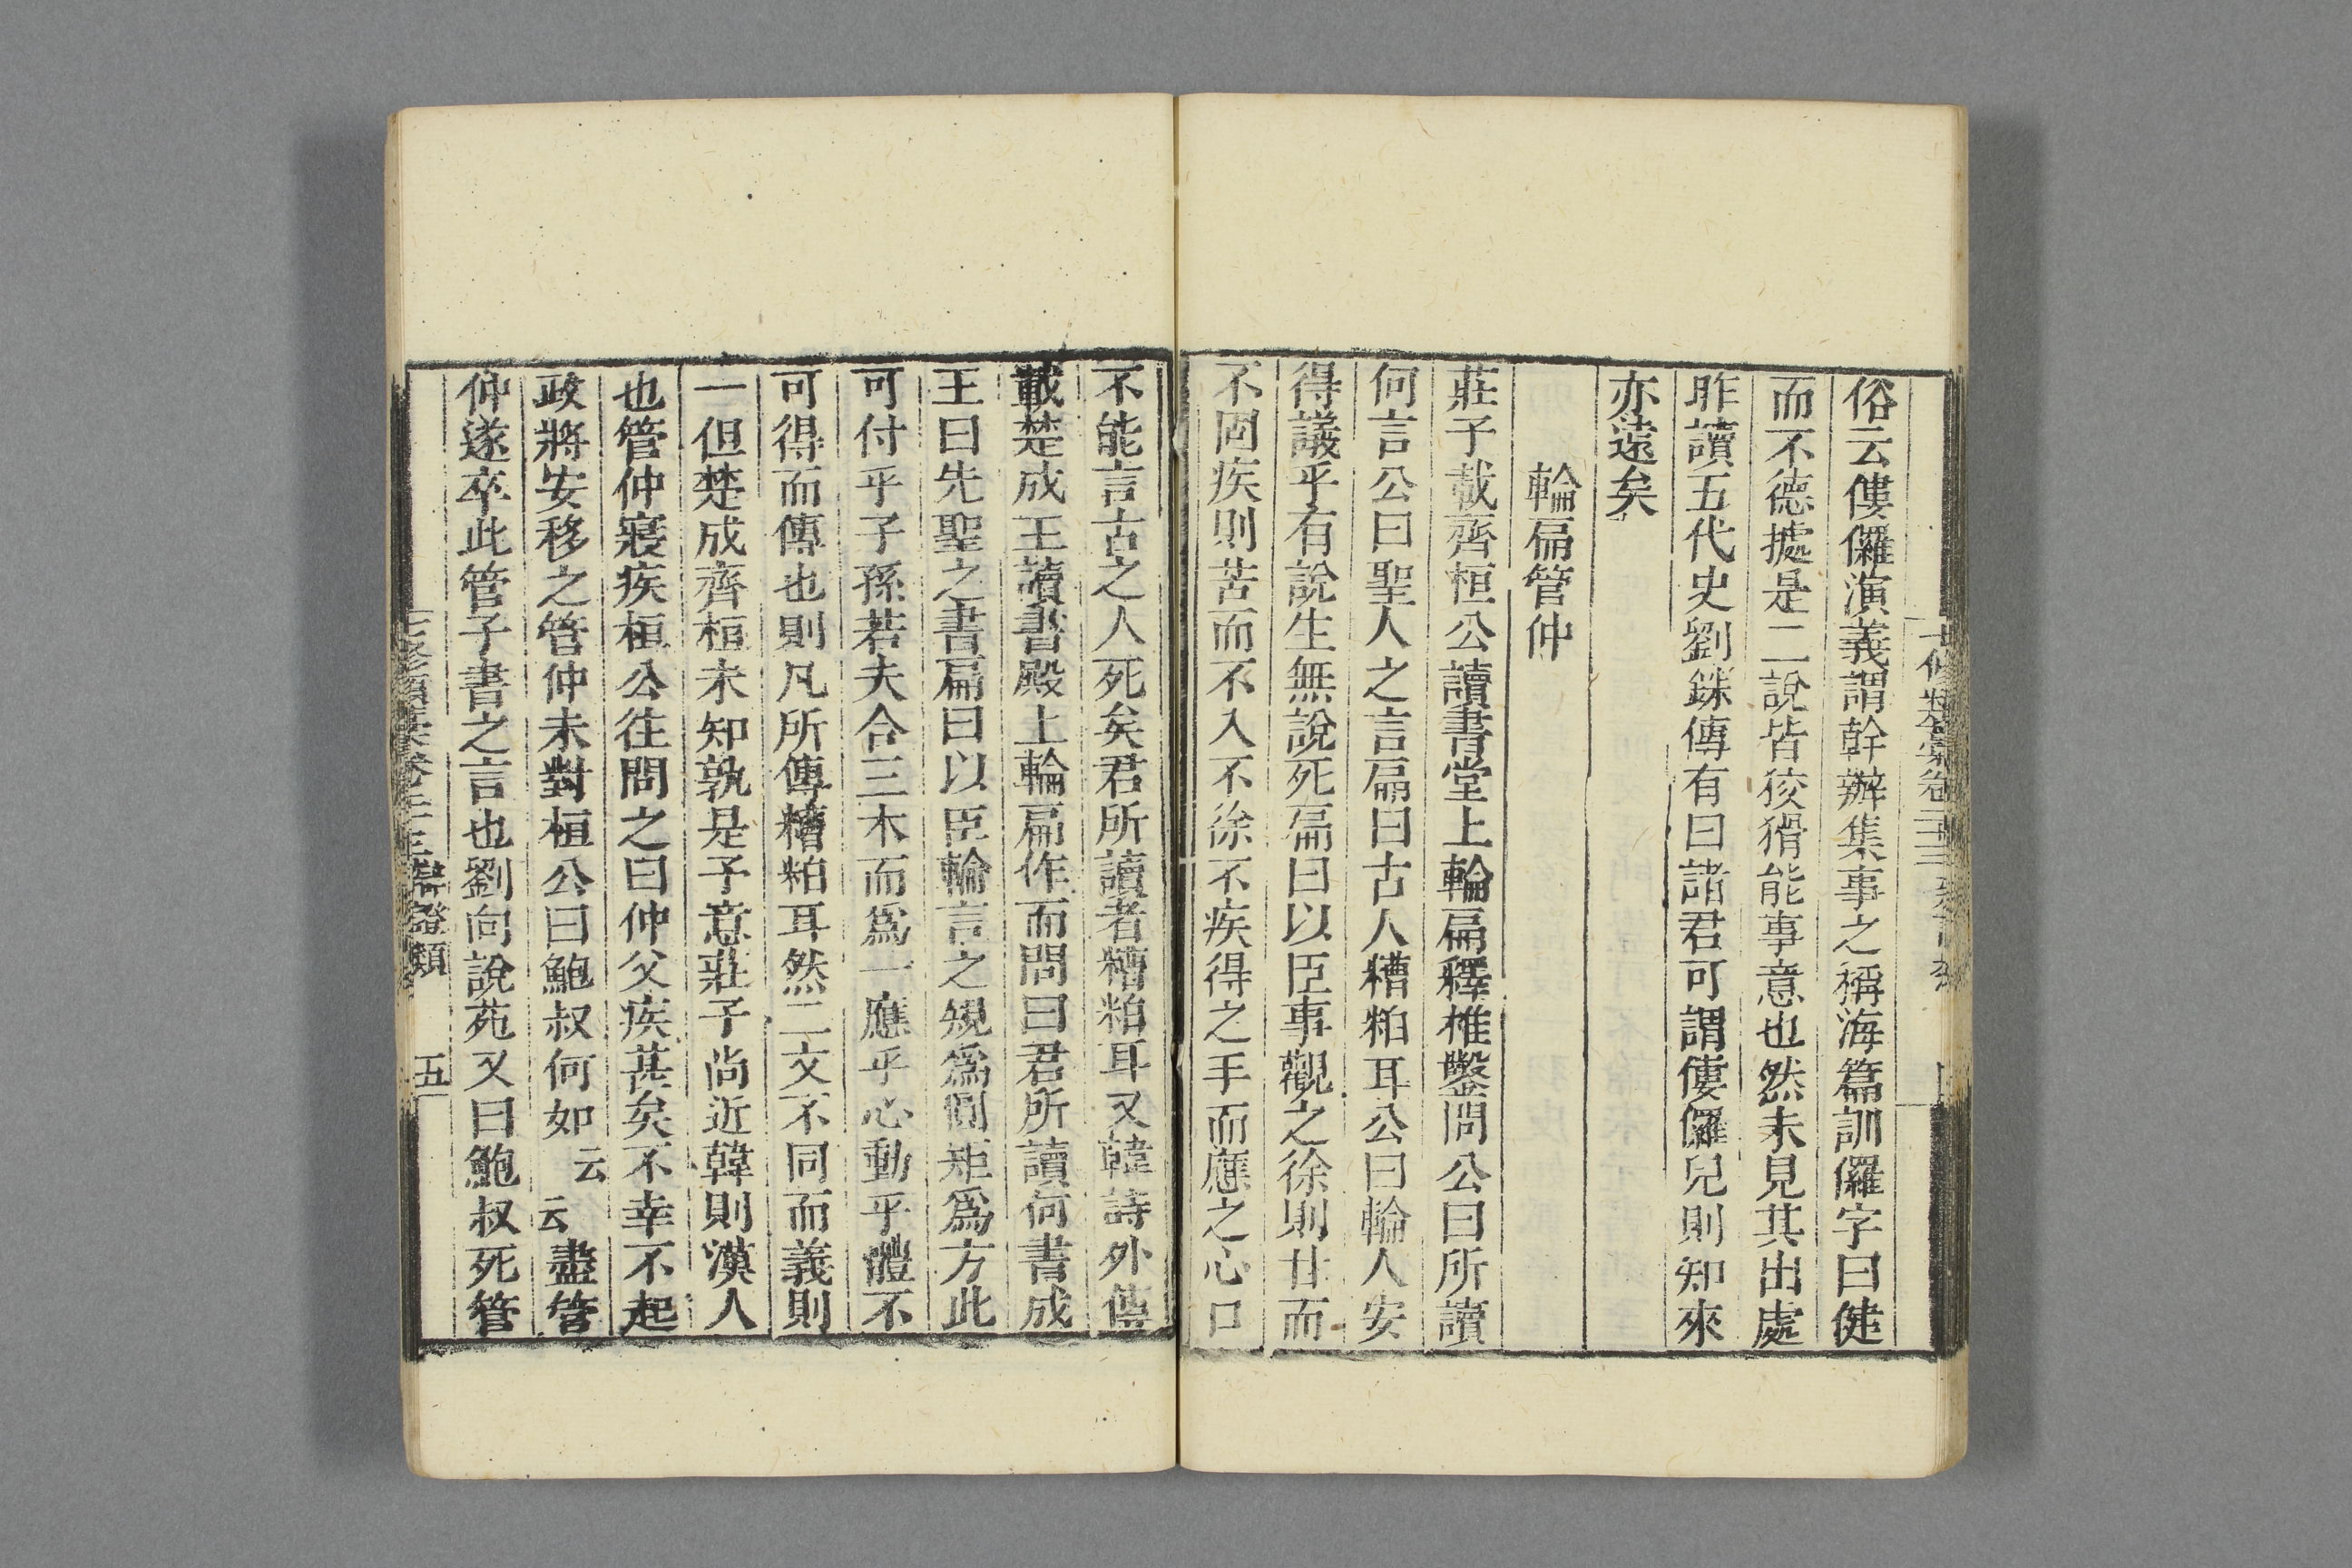 俗云僂儸演義謂幹辦集事之稱海篇訓儸字曰健
而不德據是二說皆狡猾能事意也然未見其出處
昨讀五代史劉銖傳有曰諸君可謂僂儸兒則知來
亦遠矣
輪扁管仲
莊子載齊桓公讀書堂上輪扁釋椎鑿問公曰所讀
何言公曰聖人之言扁曰古人糟粕耳公曰輪人安
得議乎有說生無說死扁曰以臣事觀之徐則甘而
不固疾則苦而不入不徐不疾得之手而應之心口
不能言古之人死矣君所讀者糟粕耳又韓詩外傳
載楚成王讀書殿上輪扁作而問曰君所讀何書成
王曰先聖之書扁曰以臣輪言之規爲圓矩爲方此
可付乎子孫若夫合三木而爲一應乎心動乎體不
可得而傳也則凡所傳糟粕耳然二文不同而義則
一但楚成齊桓未知孰是予意莊子尚近韓則漢人
也管仲寢疾桓公往問之曰仲父疾甚矣不幸不起
政將安移之管仲未對桓公曰鮑叔何如云云盡管
仲遂卒此管子書之言也劉向說苑又曰鮑叔死管
七修類藁卷二十三 辯證類 五